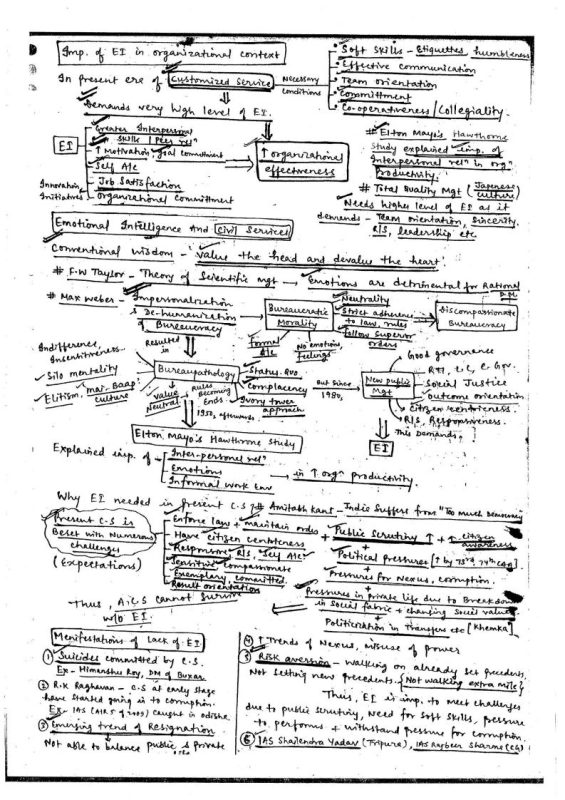 Imp. of EI in organizational context
In present era of Customized Service
Necessary conditions
• Soft Skills - Etiquettes, humbleness
• Effective communication
• Team orientation
• Committment
• Co-operativeness / Collegiality.
Demands very high level of EI.
EI
Greater Interpersonal
skills / Peer relⁿ
↑ Motivation, goal commitment
Self A/c
Job Satisfaction
Organizational Commitment
Innovation, Initiatives
↑ organizational effectiveness
# Elton Mayo's Hawthorne
Study explained imp. of
Interpersonal relⁿ in orgⁿ
Productivity.
# Total Quality Mgt (Japanese culture)
Needs higher level of EI as it
demands - Team orientation, sincerity,
R/S, leadership etc
Emotional Intelligence And Civil Services
Conventional wisdom - 'value the head and devalue the heart'.
# F.W Taylor - Theory of Scientific mgt → Emotions are detrimental for Rational D.M.
# Max Weber - Impersonalization
& De-humanization
of Bureaucracy
Bureaucratic Morality
Neutrality
Strict adherence
to law, rules
follow superior
orders
Formal A/c
No emotions, feelings
Discompassionate Bureaucracy
Resulted in
Indifference,
Insentitiveness.
Silo mentality
Elitism, mai-Baap culture
Bureaupathology
Status. Quo
Complacency
Ivory tower approach
Value Neutral
Rules Becoming Ends
But since 1980,
New public Mgt
Good governance
RTI, C.C, E. Gov.
Social Justice
Outcome orientation
Citizen Centricness.
R/S, Responsiveness.
This Demands,
EI
1950, afterwards
Elton Mayo's Hawthorne Study
Explained imp. of - Inter-personal relⁿ
Emotions
Informal work Env
in ↑ orgⁿ productivity
Why EI needed in present C.S ?
# Amitabh Kant - India Suffers from "Too much Democracy"
Present C.S is
Beset with Numerous
challenges
(Expectations)
Enforce law + maintain order
Have citizen centricness
Responsive, R/S, Self A/c
Sensitive, compassionate
Exemplary, committed.
Result orientation
+ Public Scrutiny ↑ + ↑ citizen awareness
+
Political pressures [↑ by 73rd, 74th CAA]
+
Pressures for Nexus, corruption.
+
Pressures in private life due to Breakdown
in Social fabric + changing Social values
+
Politicization in Transfers etc [Khemka]
Thus, A.C.S cannot Survive
w/o EI.
Manifestations of Lack of EI
① Suicides committed by C.S.
Ex - Himanshu Roy, DM of Buxar
② R.K Raghavan - C.S at early stage
have started going in to corruption.
Ex - IAS (AIR 5 of 2005) caught in odisha
③ Emerging trend of Resignation
Not able to balance public & private
④ ↑ Trends of Nexus, misuse of power
⑤ Risk aversion - walking on already set precedents.
Not setting new precedents. Not walking extra mile
Thus, EI is imp. to meet challenges
due to public scrutiny, need for soft skills, pressure
to perform & withstand pressure for corruption.
⑥ IAS Shailendra Yadav (Tripura), IAS Ranbeer Sharma (CG)